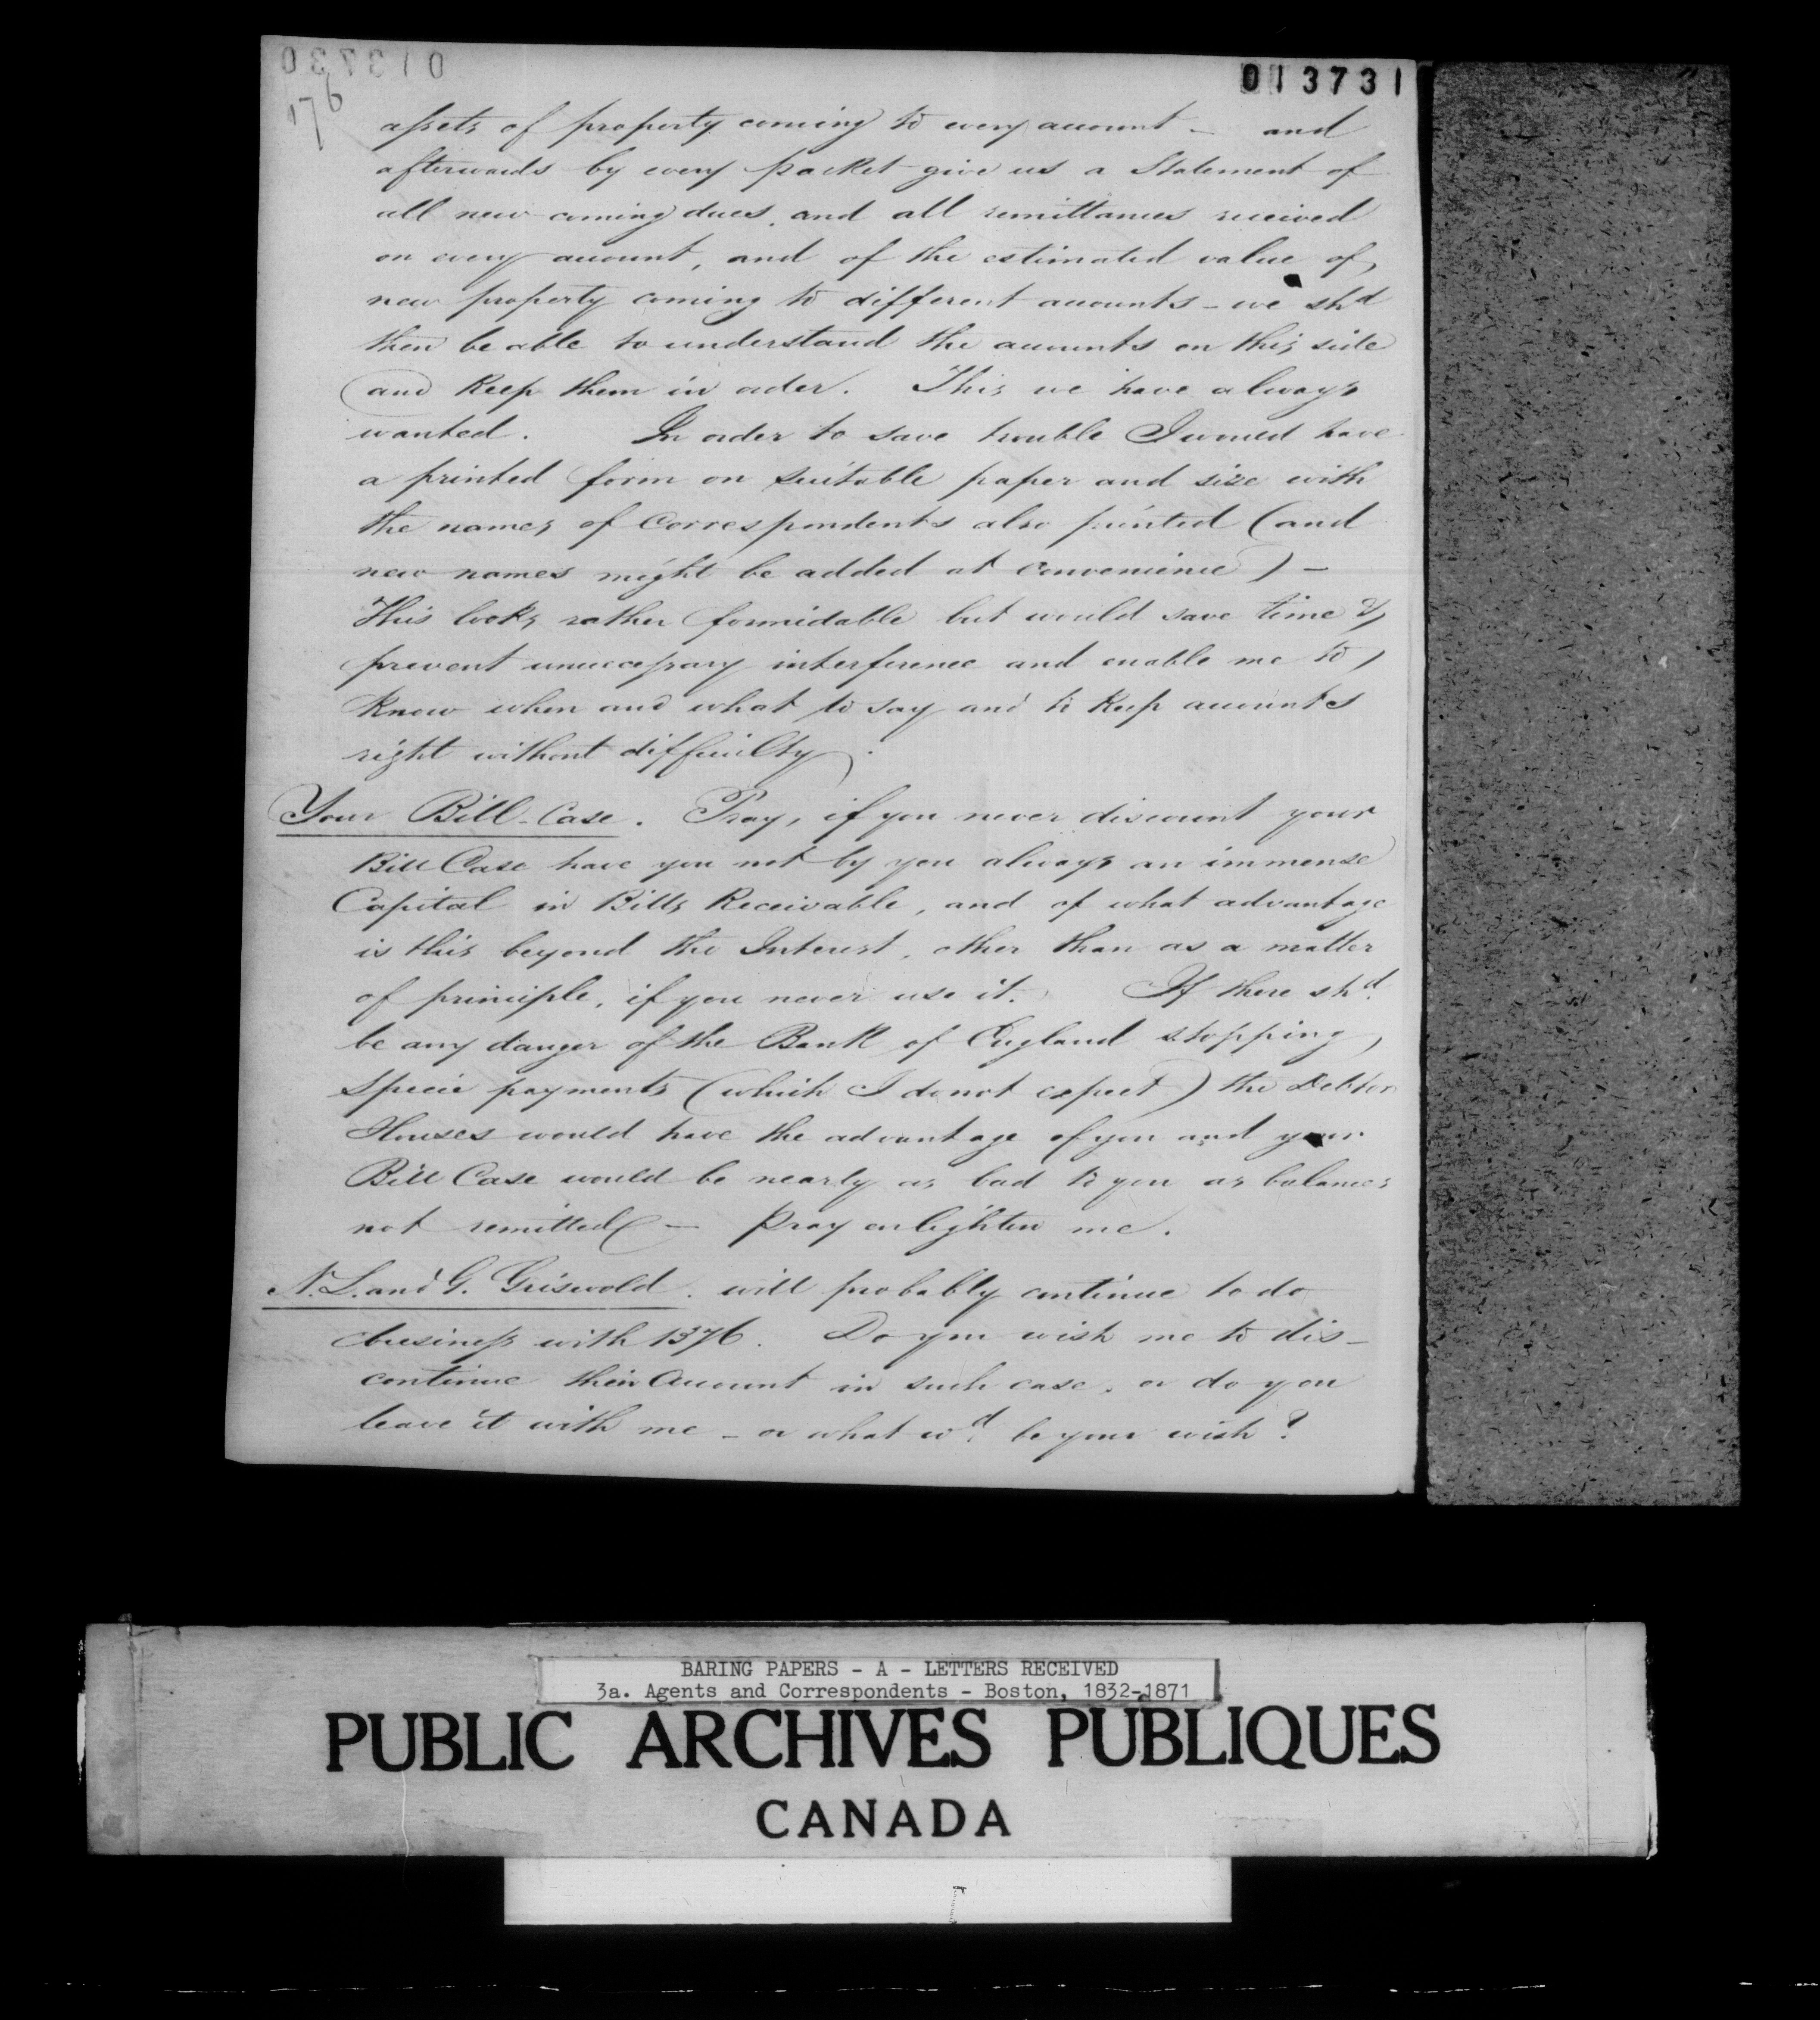 013730
013731
176
assets of property coming to every account - and
afterwards by every packet give us a Statement of
all new coming dues, and all remittances received
on every account, and of the estimated value of
new property coming to different accounts - we shd
then be able to understand the accounts on this side
and keep them in order. This we have always
wanted. In order to save trouble I would have
a printed form on suitable paper and size with
the names of Correspondents also printed (and
new names might be added at convenience) -
This looks rather formidable but would save time &
prevent unnecessary interference and enable me to
know when and what to say and to keep accounts
right without difficulty.
Your Bill-Case. Pray, if you never discount your
Bill Case have you not by you always an immense
Capital in Bills Receivable, and of what advantage
is this beyond the Interest, other than as a matter
of principle, if you never use it. If there shd.
be any danger of the Bank of England stopping
specie payments (which I do not expect) the Debtor
Houses would have the advantage of you and your
Bill Case would be nearly as bad to you as balances
not remitted - Pray enlighten me.
N. L. and G. Griswold. will probably continue to do
business with 1376. Do you wish me to dis-
continue their Account in such case, or do you
leave it with me - or what wd. be your wish?
BARING PAPERS - A - LETTERS RECEIVED
3a. Agents and Correspondents - Boston, 1832-1871
PUBLIC ARCHIVES PUBLIQUES
CANADA